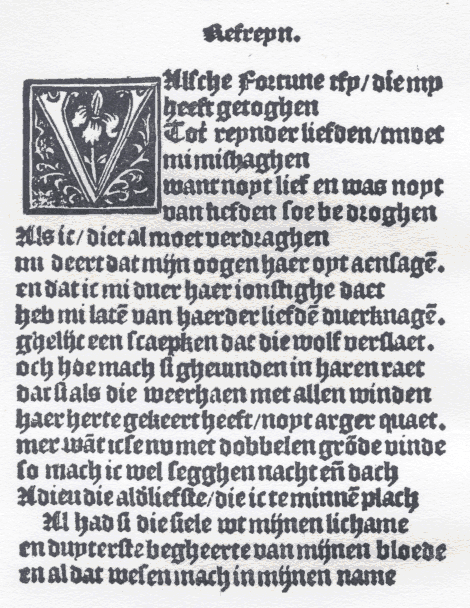 Refreyn.
VAlsche Fortune tsy/ die my
heeft getoghen
Tot reynder liefden/tmoet
mi mishaghen
want noyt lief en was noyt
van liefden soe bedroghen
Als ic/ diet al moet verdraghen
mi deert dat mijn oogen haer oyt aensagē.
en dat ic mi duer haer ionstighe daet
heb mi latē van haerder liefdē duerknagē.
ghelijc een scaepken dat die wolf verslaet.
och hoe mach si ghewinden in haren raet
dat si als die weerhaen met allen winden
haer herte gekeert heeft/noyt arger quaet.
mer wāt icse nv met dobbelen grōde vinde
so mach ic wel segghen nacht eñ dach
Adieu die aldliefste/die ic te minnē plach
Al had si die siele wt mijnen lichame
en duyterste begheerte van mijnen bloede
en al dat wesen mach in mijnen name